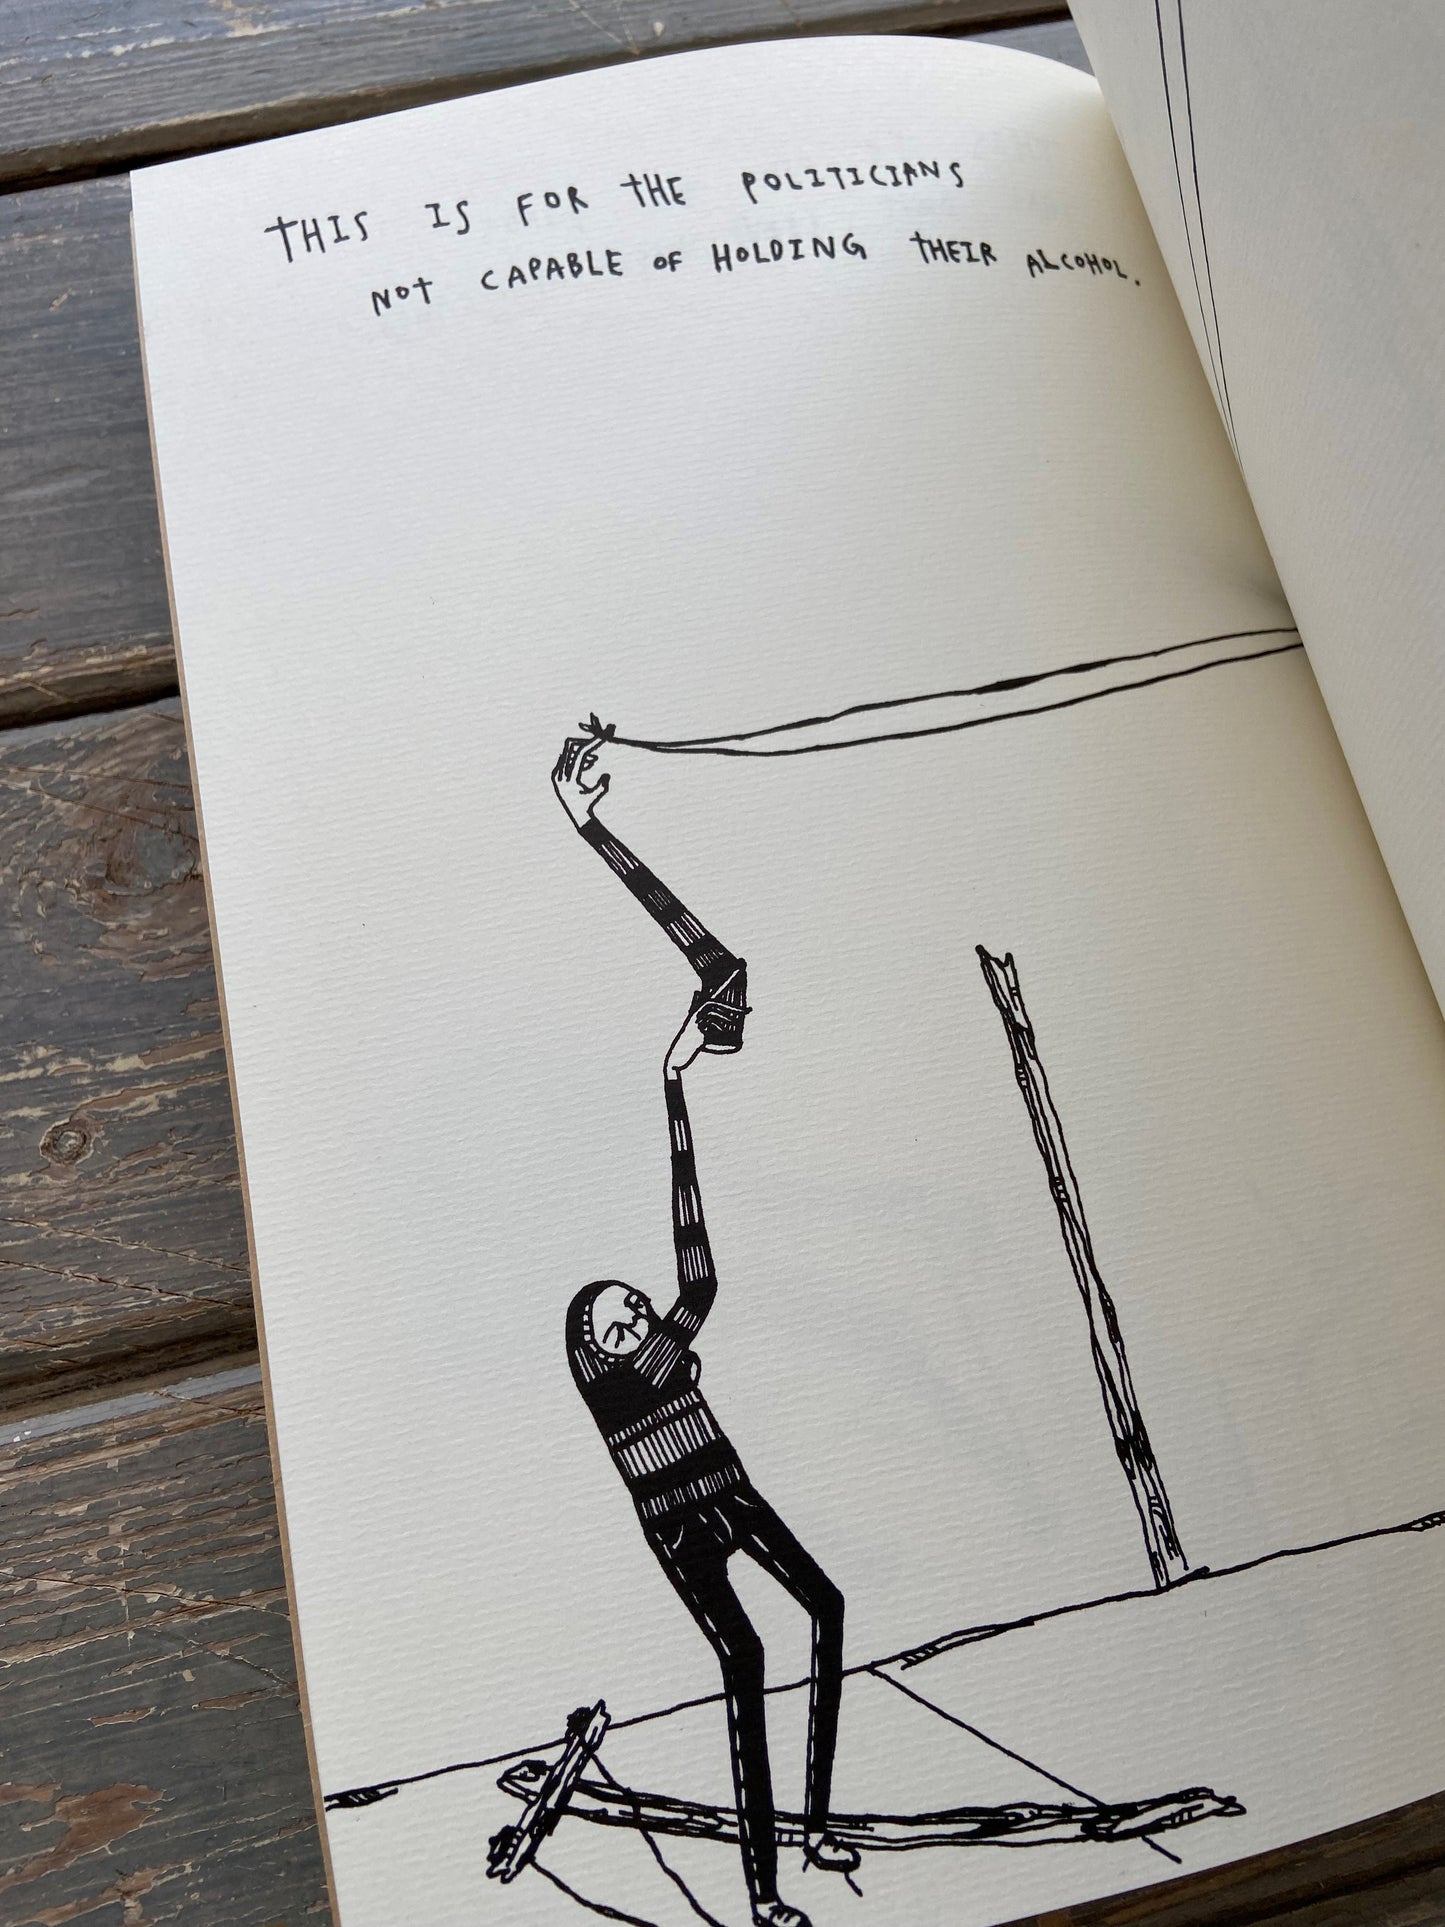 THIS IS FOR THE POLITICIANS
NOT CAPABLE OF HOLDING THEIR ALCOHOL.